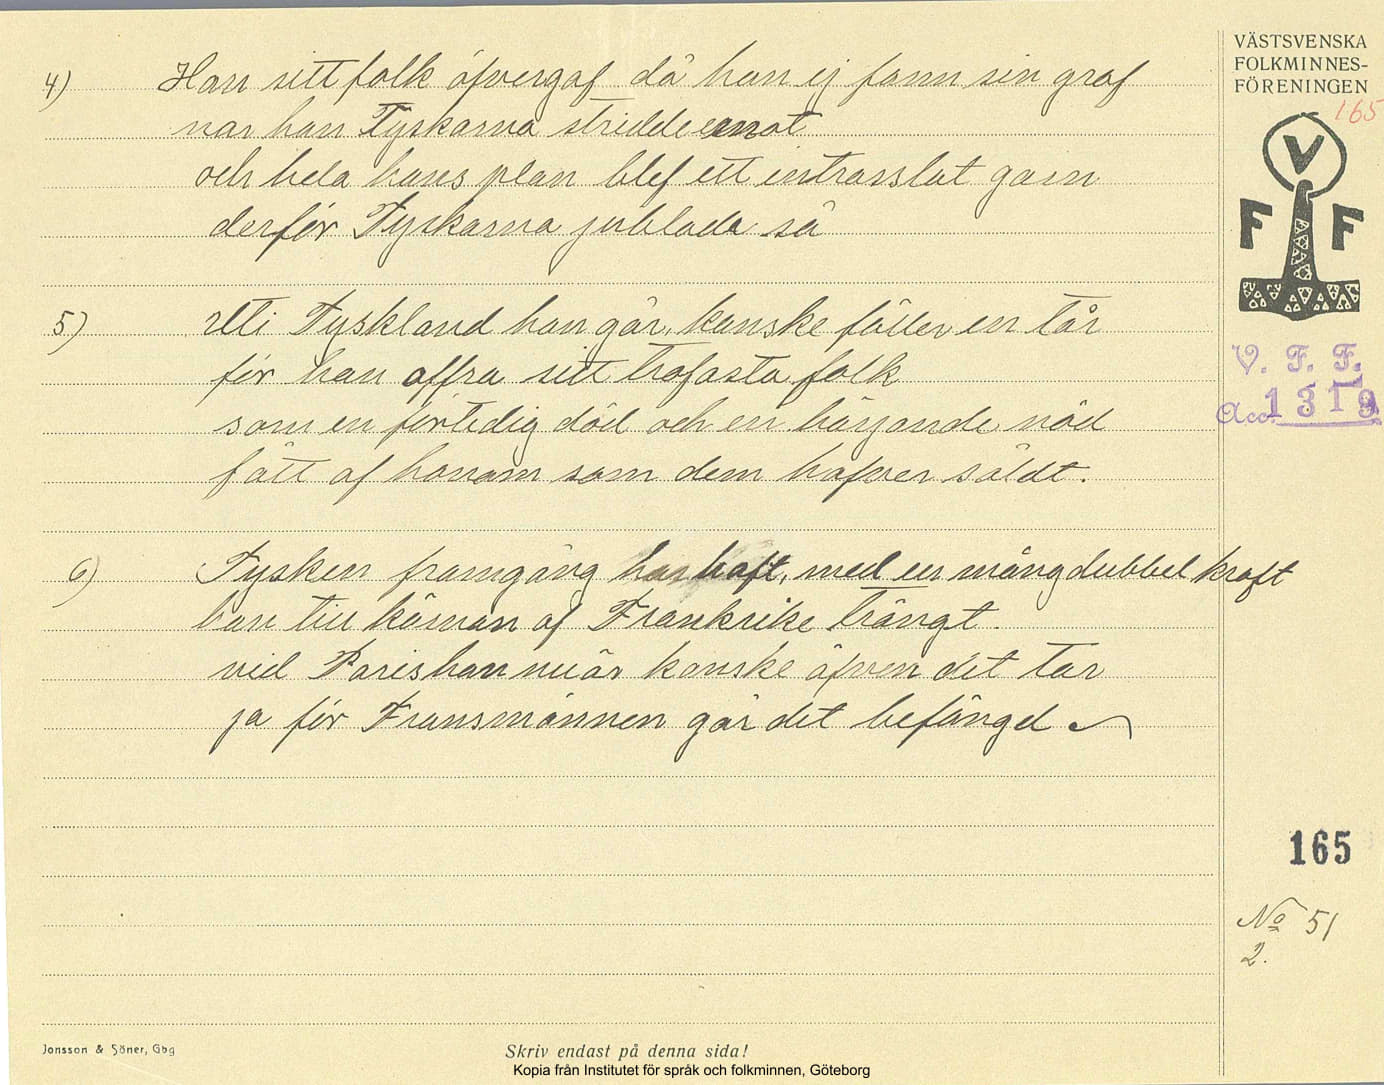 VÄSTSVENSKA
FOLKMINNES-
FÖRENINGEN
165
V
F F
V. F. F.
Acc. 1319
4) Han sitt folk öfvergaf då han ej fann sin graf
när han Tyskarna stridde emot
och hela hans plan blef ett intrasslat garn
derför Tyskarna jublade så
5) Uti Tyskland han går, kanske fäller en tår
för han offra sitt trofasta folk
som en förtidig död och en härjande nöd
fått af honom som dem hafver såldt.
6) Tysken framgång har haft, med en mångdubbel kraft
han till kärnan af Frankrike trängt.
vid Paris han nu är kanske äfven det tar
ja för Fransmännen går det befängd
165
No 51
2.
Jonsson & Söner, Gbg
Skriv endast på denna sida!
Kopia från Institutet för språk och folkminnen, Göteborg